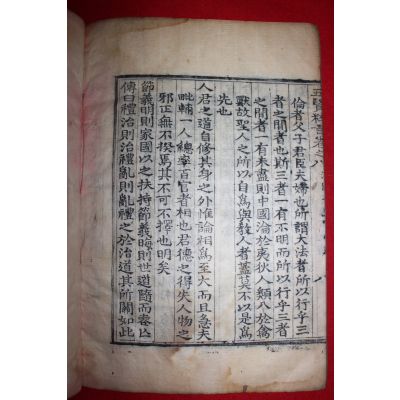 五賢粹言卷之八
倫者父子君臣夫婦也所謂大法者所以行乎三
者之間者也斯三者一有不明而所以行乎三者
之間者一有未盡則中國淪於夷狄人類入於禽
獸故聖人之所以自爲與敎人者蓋莫不以是爲
先也
人君之道自修其身之外惟論相爲至大而且急夫
毗輔一人總率百官者相也君德之得失人物之
邪正無不揆焉其不可不擇也明矣
節義明則家國以之扶持節義晦則世道隨而喪亡
傳曰禮治則治禮亂則亂禮之於治道其所關如此